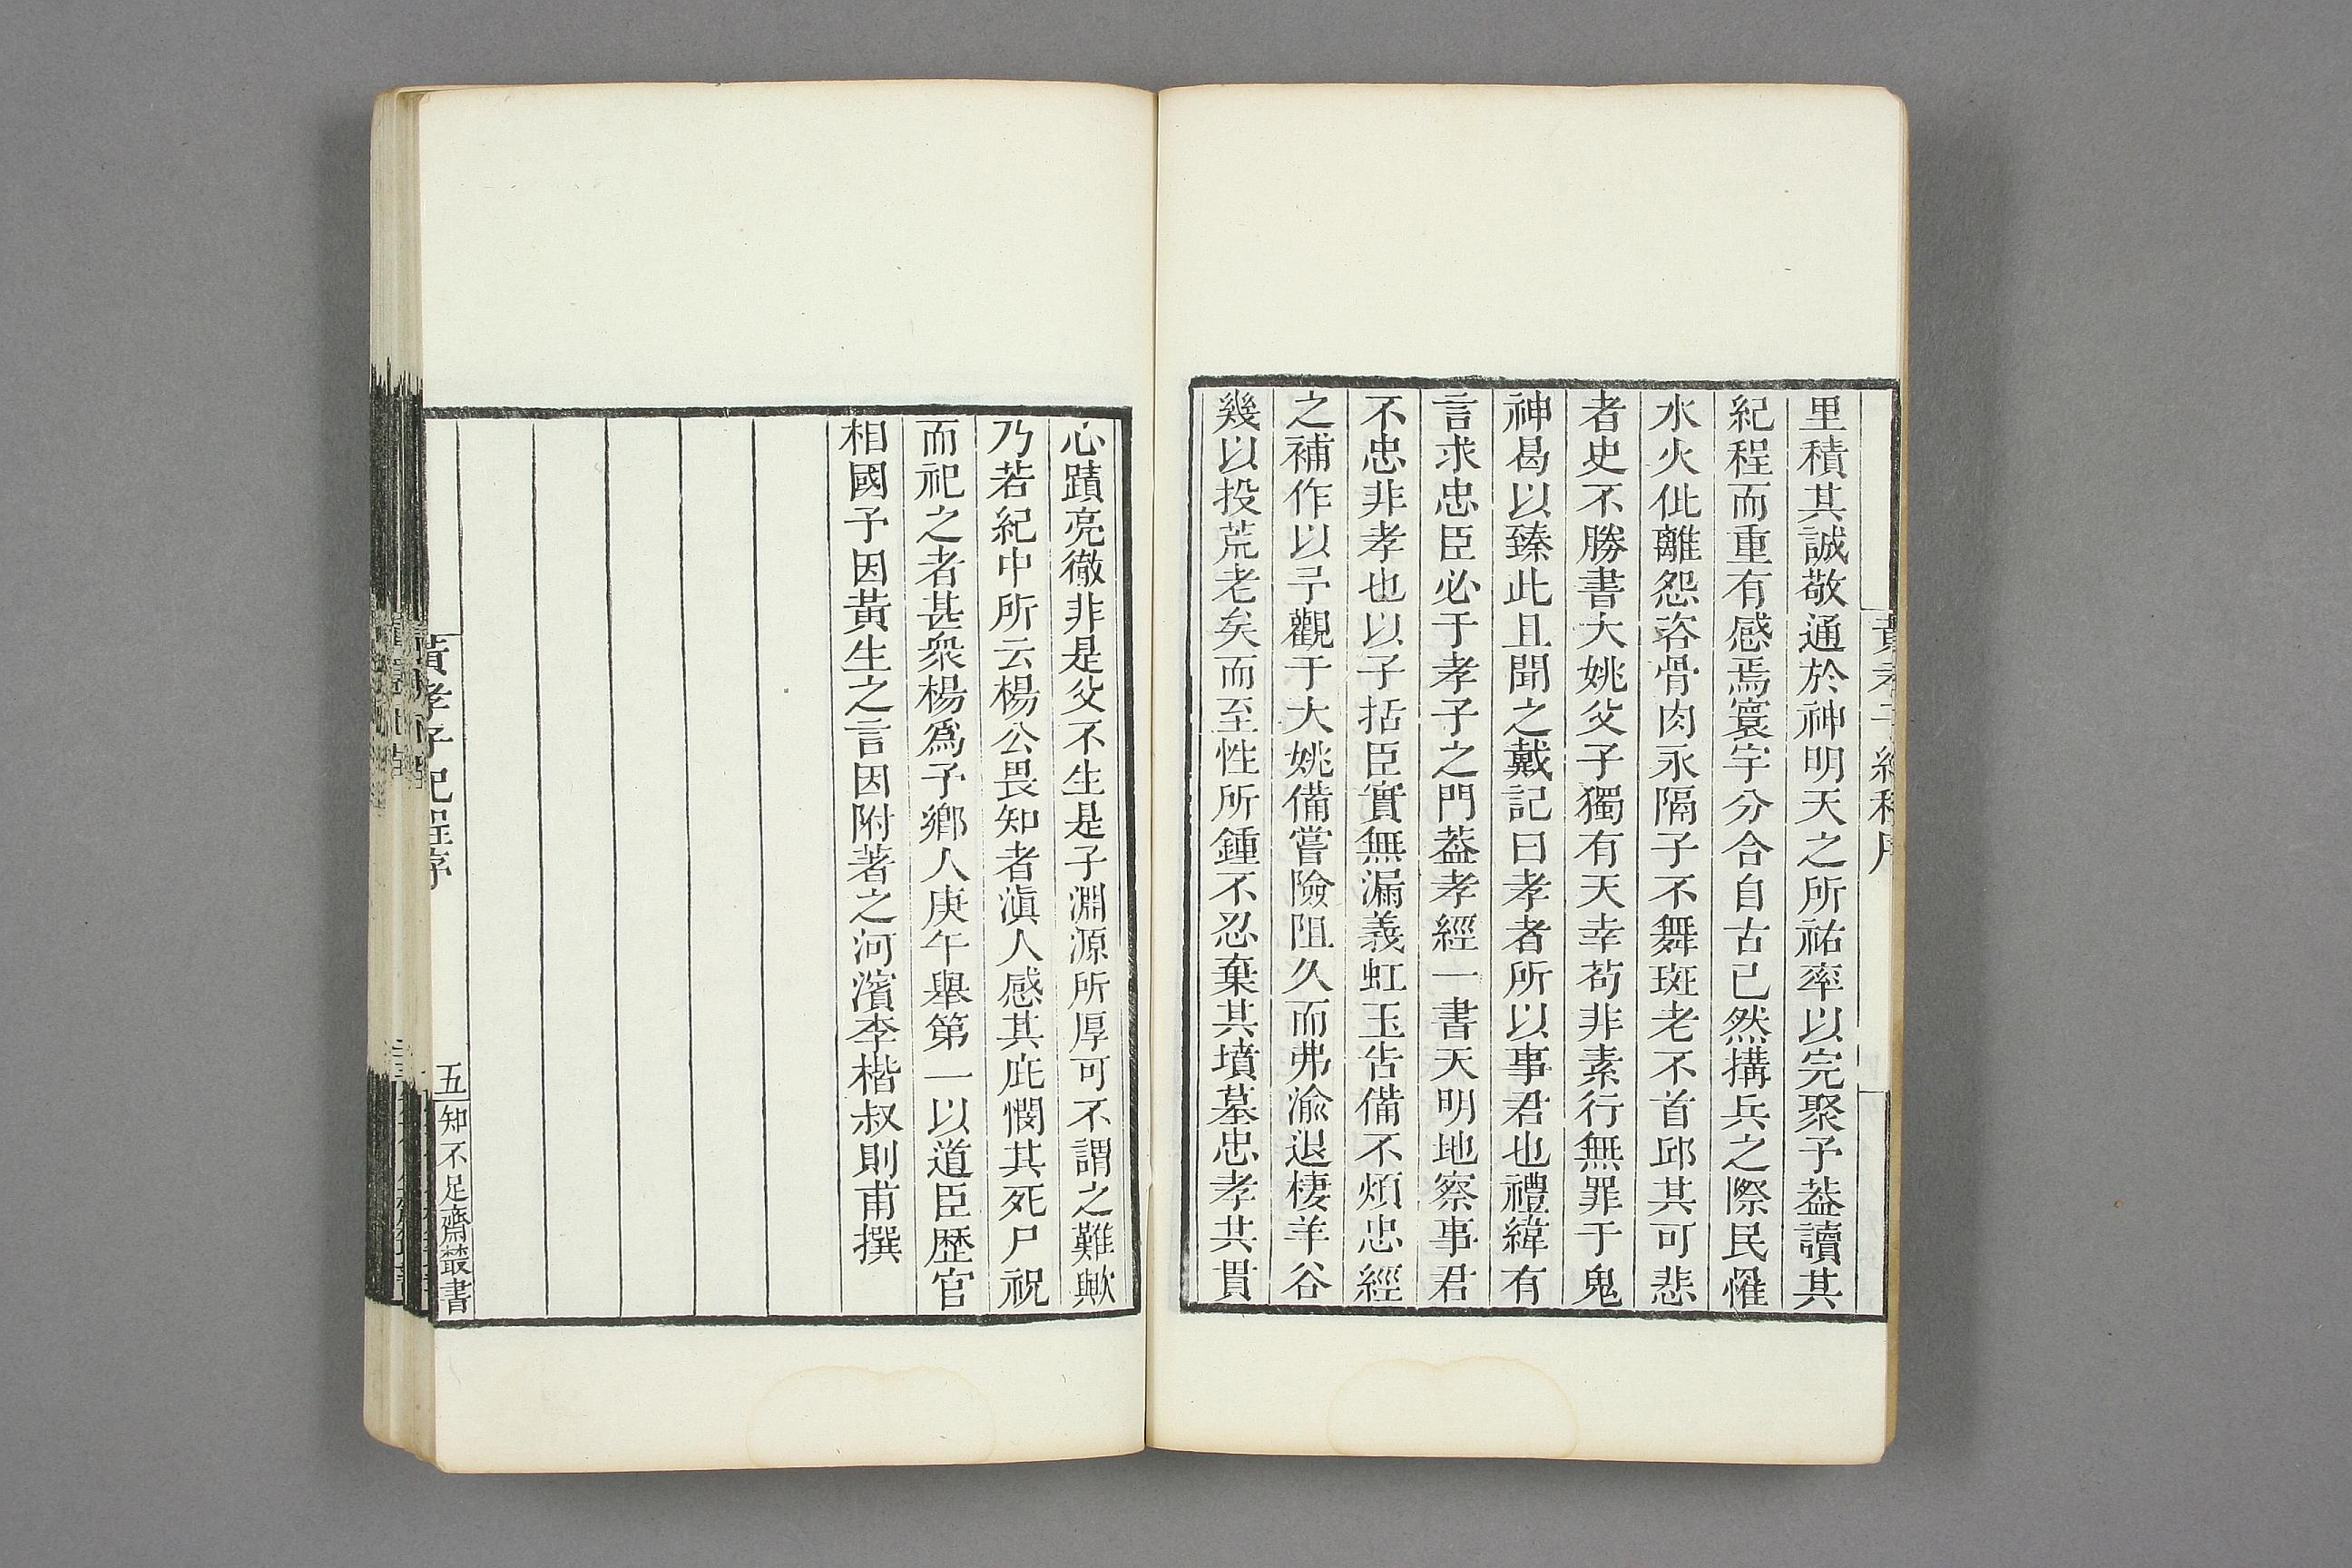 里積其誠敬通於神明天之所祐率以完聚予葢讀其
紀程而重有感焉寰宇分合自古已然搆兵之際民罹
水火仳離怨咨骨肉永隔子不舞斑老不首邱其可悲
者史不勝書大姚父子獨有天幸苟非素行無罪于鬼
神曷以臻此且聞之戴記曰孝者所以事君也禮緯有
言求忠臣必于孝子之門葢孝經一書天明地察事君
不忠非孝也以子括臣實無漏義虹玉告備不煩忠經
之補作以予觀于大姚備嘗險阻久而弗渝退棲羊谷
幾以投荒老矣而至性所鍾不忍棄其墳墓忠孝共貫
心蹟亮徹非是父不生是子淵源所厚可不謂之難歟
乃若紀中所云楊公畏知者滇人感其庇憫其死尸祝
而祀之者甚衆楊爲予鄉人庚午舉第一以道臣歷官
相國予因黃生之言因附著之河濱李楷叔則甫撰
黃孝子紀程序
五
知不足齋叢書